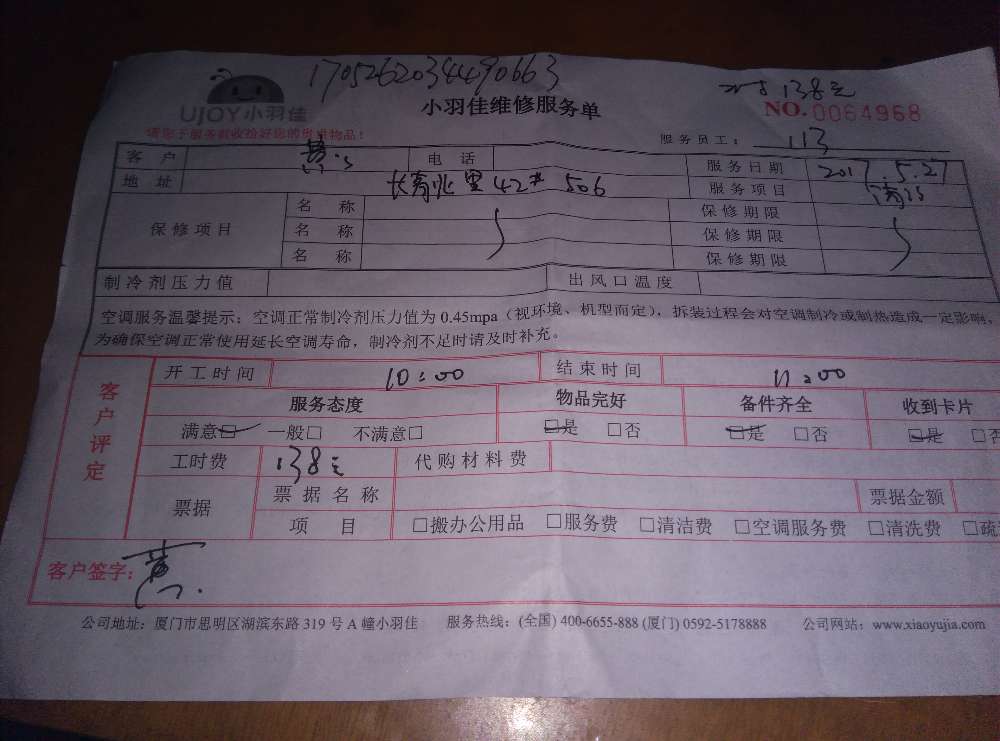 1705262034490663
138元
UJOY小羽佳
小羽佳维修服务单
NO.0064968
请您于服务前收拾好您的贵重物品!
服务员工: 113
客户 黄 电话 服务日期 2017.5.27
地址 42# 506 服务项目 清洗
保修项目 名称 保修期限
名称 保修期限
名称 保修期限
制冷剂压力值 出风口温度
空调服务温馨提示:空调正常制冷剂压力值为 0.45mpa(视环境、机型而定),拆装过程会对空调制冷或制热造成一定影响,
为确保空调正常使用延长空调寿命,制冷剂不足时请及时补充。
客户评定 开工时间 10:00 结束时间 11:00
服务态度 物品完好 备件齐全 收到卡片
满意☑ 一般□ 不满意□ ☑是 □否 ☑是 □否 ☑是 □否
工时费 138元 代购材料费
票据 票据名称 票据金额
项目 □搬办公用品 □服务费 □清洁费 □空调服务费 □清洗费 □疏
客户签字: 黄
公司地址:厦门市思明区湖滨东路 319 号 A 幢小羽佳 服务热线:(全国) 400-6655-888 (厦门) 0592-5178888 公司网站:www.xiaoyujia.com